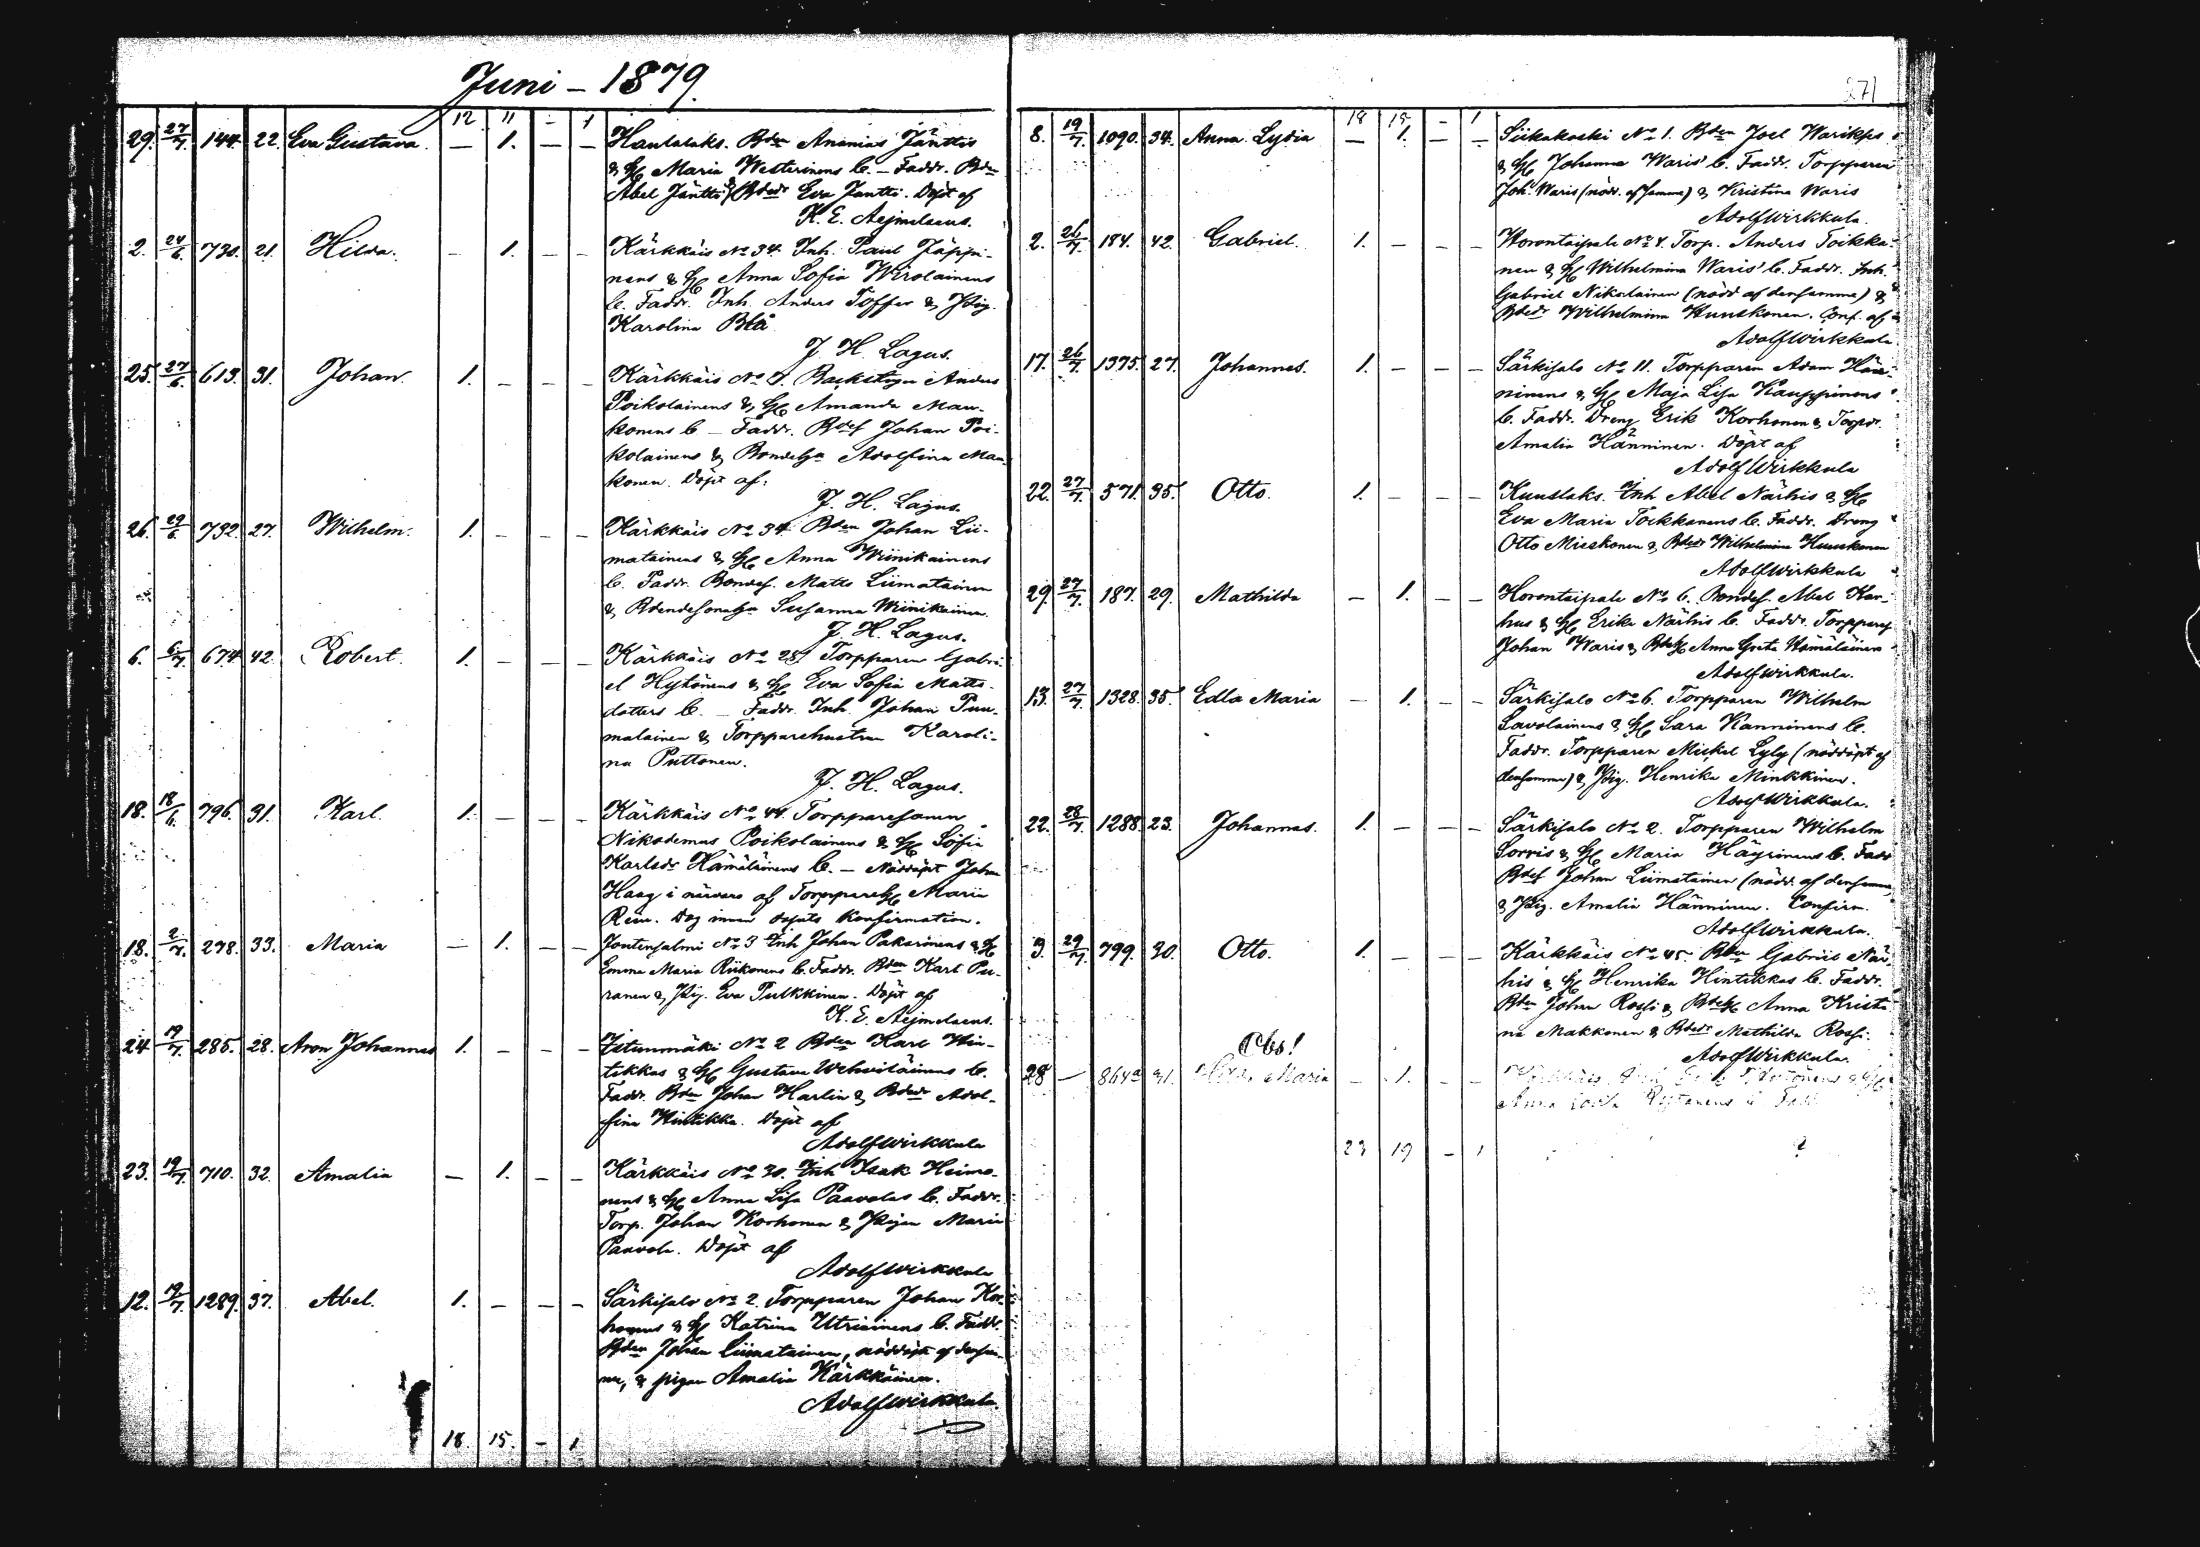 Juni – 1879.
271
12. 11 - 1
29. 27/7. 144. 22. Eva Gustava. — 1. — — Hautalaks. Bden Ananias Jänttis
& H Maria Westerinens b. – Faddr. Bden
Abel Jäntti & Bdedr Eva Jäntti. Döpt af
K. E. Aejmelaeus.
2. 24/6. 730. 21. Hilda. — 1. — — Kärkkäis No 34. Inh. Paul Jäppi-
nens & H Anna Sofia Wirolainens
b. Faddr. Inh. Anders Toffer & Pig.
Karolina Blå
J. H. Lagus.
25. 27/6. 613. 31. Johan. 1. — — — Kärkkäis No 7. Backstugu Anders
Poikolainens & H Amanda Mau-
konens b – Faddr. Bdes Johan Poi-
kolainens & Bondehu Adolfina Mau-
konen. Döpt af:
J. H. Lagus.
26. 29/6. 732. 27. Wilhelm. 1. — — — Kärkkäis No 34. Bden Johan Lii-
matainens & H Anna Wiinikainens
b. Faddr. Bondes. Matts Liimatainen
& Susanna Wiinikainen.
J. H. Lagus.
6. 6/7. 674. 42. Robert. 1. — — — Kärkkäis No 25. Torpparen Gabri-
el Hytönens & H Eva Sofia Matts-
dotters b. – Faddr. Inh. Johan Puu-
malainen & Torpparehustrun Karoli-
na Puttonen.
J. H. Lagus.
18. 18/6. 796. 31. Karl. 1. — — — Kärkkäis No 44. Torpparesonen
Nikodemus Poikolainens & H Sofia
Karlsdr Hämäläinens b. – Nöddöpt Johan
Haag i närvaro af TorppareH Maria
Rein. Dog innan dopets konfirmation.
18. 2/7. 278. 33. Maria — 1. — — Jontensalmi No 3 Inh Johan Pakarinens & H
Emma Maria Riikonens b. Faddr. Bden Karl Pu-
ranen & Pig. Eva Pulkkinen. Döpt af
K. E. Aejmelaeus.
24. 19/7. 285. 28. Aron Johannes 1. — — — Istunmäki No 2 Bden Karl Hin-
tikkas & H Gustava Wehviläinens b.
Faddr. Bden Johan Harlin & Bdedr Adol-
fina Hintikka. Döpt af
Adolf Wirkkula
23. 19/7. 710. 32. Amalia — 1. — — Kärkkäis No 30. Inh Isak Heimo-
nens & H Anna Lisa Paavolas b. Faddr.
Torp. Johan Korhonen & Pigan Maria
Paavola. Döpt af
Adolf Wirkkula
12. 19/7. 1289. 37. Abel. 1. — — — Särkisalo No 2. Torpparen Johan Kor-
honens & H Katrina Utriainens b. Faddr.
Bden Johan Liimatainen, nöddöpt af densam-
me, & pigan Amalia Kärkkäinen.
Adolf Wirkkula.
18. 15. - 1
18 15 - 1
8. 19/7. 1090. 34. Anna Lydia — 1. — — Siikakoski No 1. Bden Joel
& H Johanna Waris' b. Faddr. Torpparen
Joh. Waris (nödd. af samma) & Kristina Waris
Adolf Wirkkula.
2. 26/7. 184. 42. Gabriel. 1. — — — Horontaipale No 4. Torp. Anders Toikka-
nen & H Wilhelmina Waris' b. Faddr. Inh.
Gabriel Nikolainen (nödd af densamma) &
Bdedr Wilhelmina Kuuskonen. Conf. af
Adolf Wirkkula
17. 26/7. 1375. 27. Johannes. 1. — — — Särkisalo No 11. Torpparen Adam Hän-
ninens & H Maja Lisa Kauppinens
b. Faddr. Dreng Erik Korhonen & Torpdr.
Amalia Hänninen. Döpt af
Adolf Wirkkula
22. 27/7. 571. 35. Otto. 1. — — — Kuuslaks. Inh Abel Närhis & H
Eva Maria Toikkanens b. Faddr. Dreng
Otto Mieskonen & Bdedr Wilhelmina Kuuskonen
Adolf Wirkkula
29. 27/7. 187. 29. Mathilda — 1. — — Horontaipale No 6. Bondes. Abel Kar-
hus & H Erika Närhis b. Faddr. Torppares
Johan Waris & BdeH Anna Greta Hämäläinen
Adolf Wirkkula.
13. 27/7. 1328. 35. Edla Maria — 1. — — Särkisalo No 6. Torpparen Wilhelm
Savolainens & H Sara Kanninens b.
Faddr. Torpparen Mickel Lyly (nöddöpt af
densamma) & Pig. Henrika Minkkinen.
Adolf Wirkkula.
22. 28/7. 1288. 23. Johannes. 1. — — — Särkisalo No 2. Torpparen Wilhelm
Sorris & H Maria Häyrinens b. Fadd
Bdes Johan Liimatainen (nödd. af densamma
& Pig. Amalia Hänninen. Confirm.
Adolf Wirkkula.
3. 29/7. 799. 30. Otto. 1. — — — Kärkkäis No 45. Bden Gabriel När-
his' & H Henrika Hintikkas b. Faddr.
Bden Johan Rossi & BdeH Anna Kristi
na Makkonen & Bdedr Mathilda Rossi.
Adolf Wirkkula.
Obs!
28 — 864a 31. Maria — 1. — —
Anna b Fadd
23 19 - 1
?